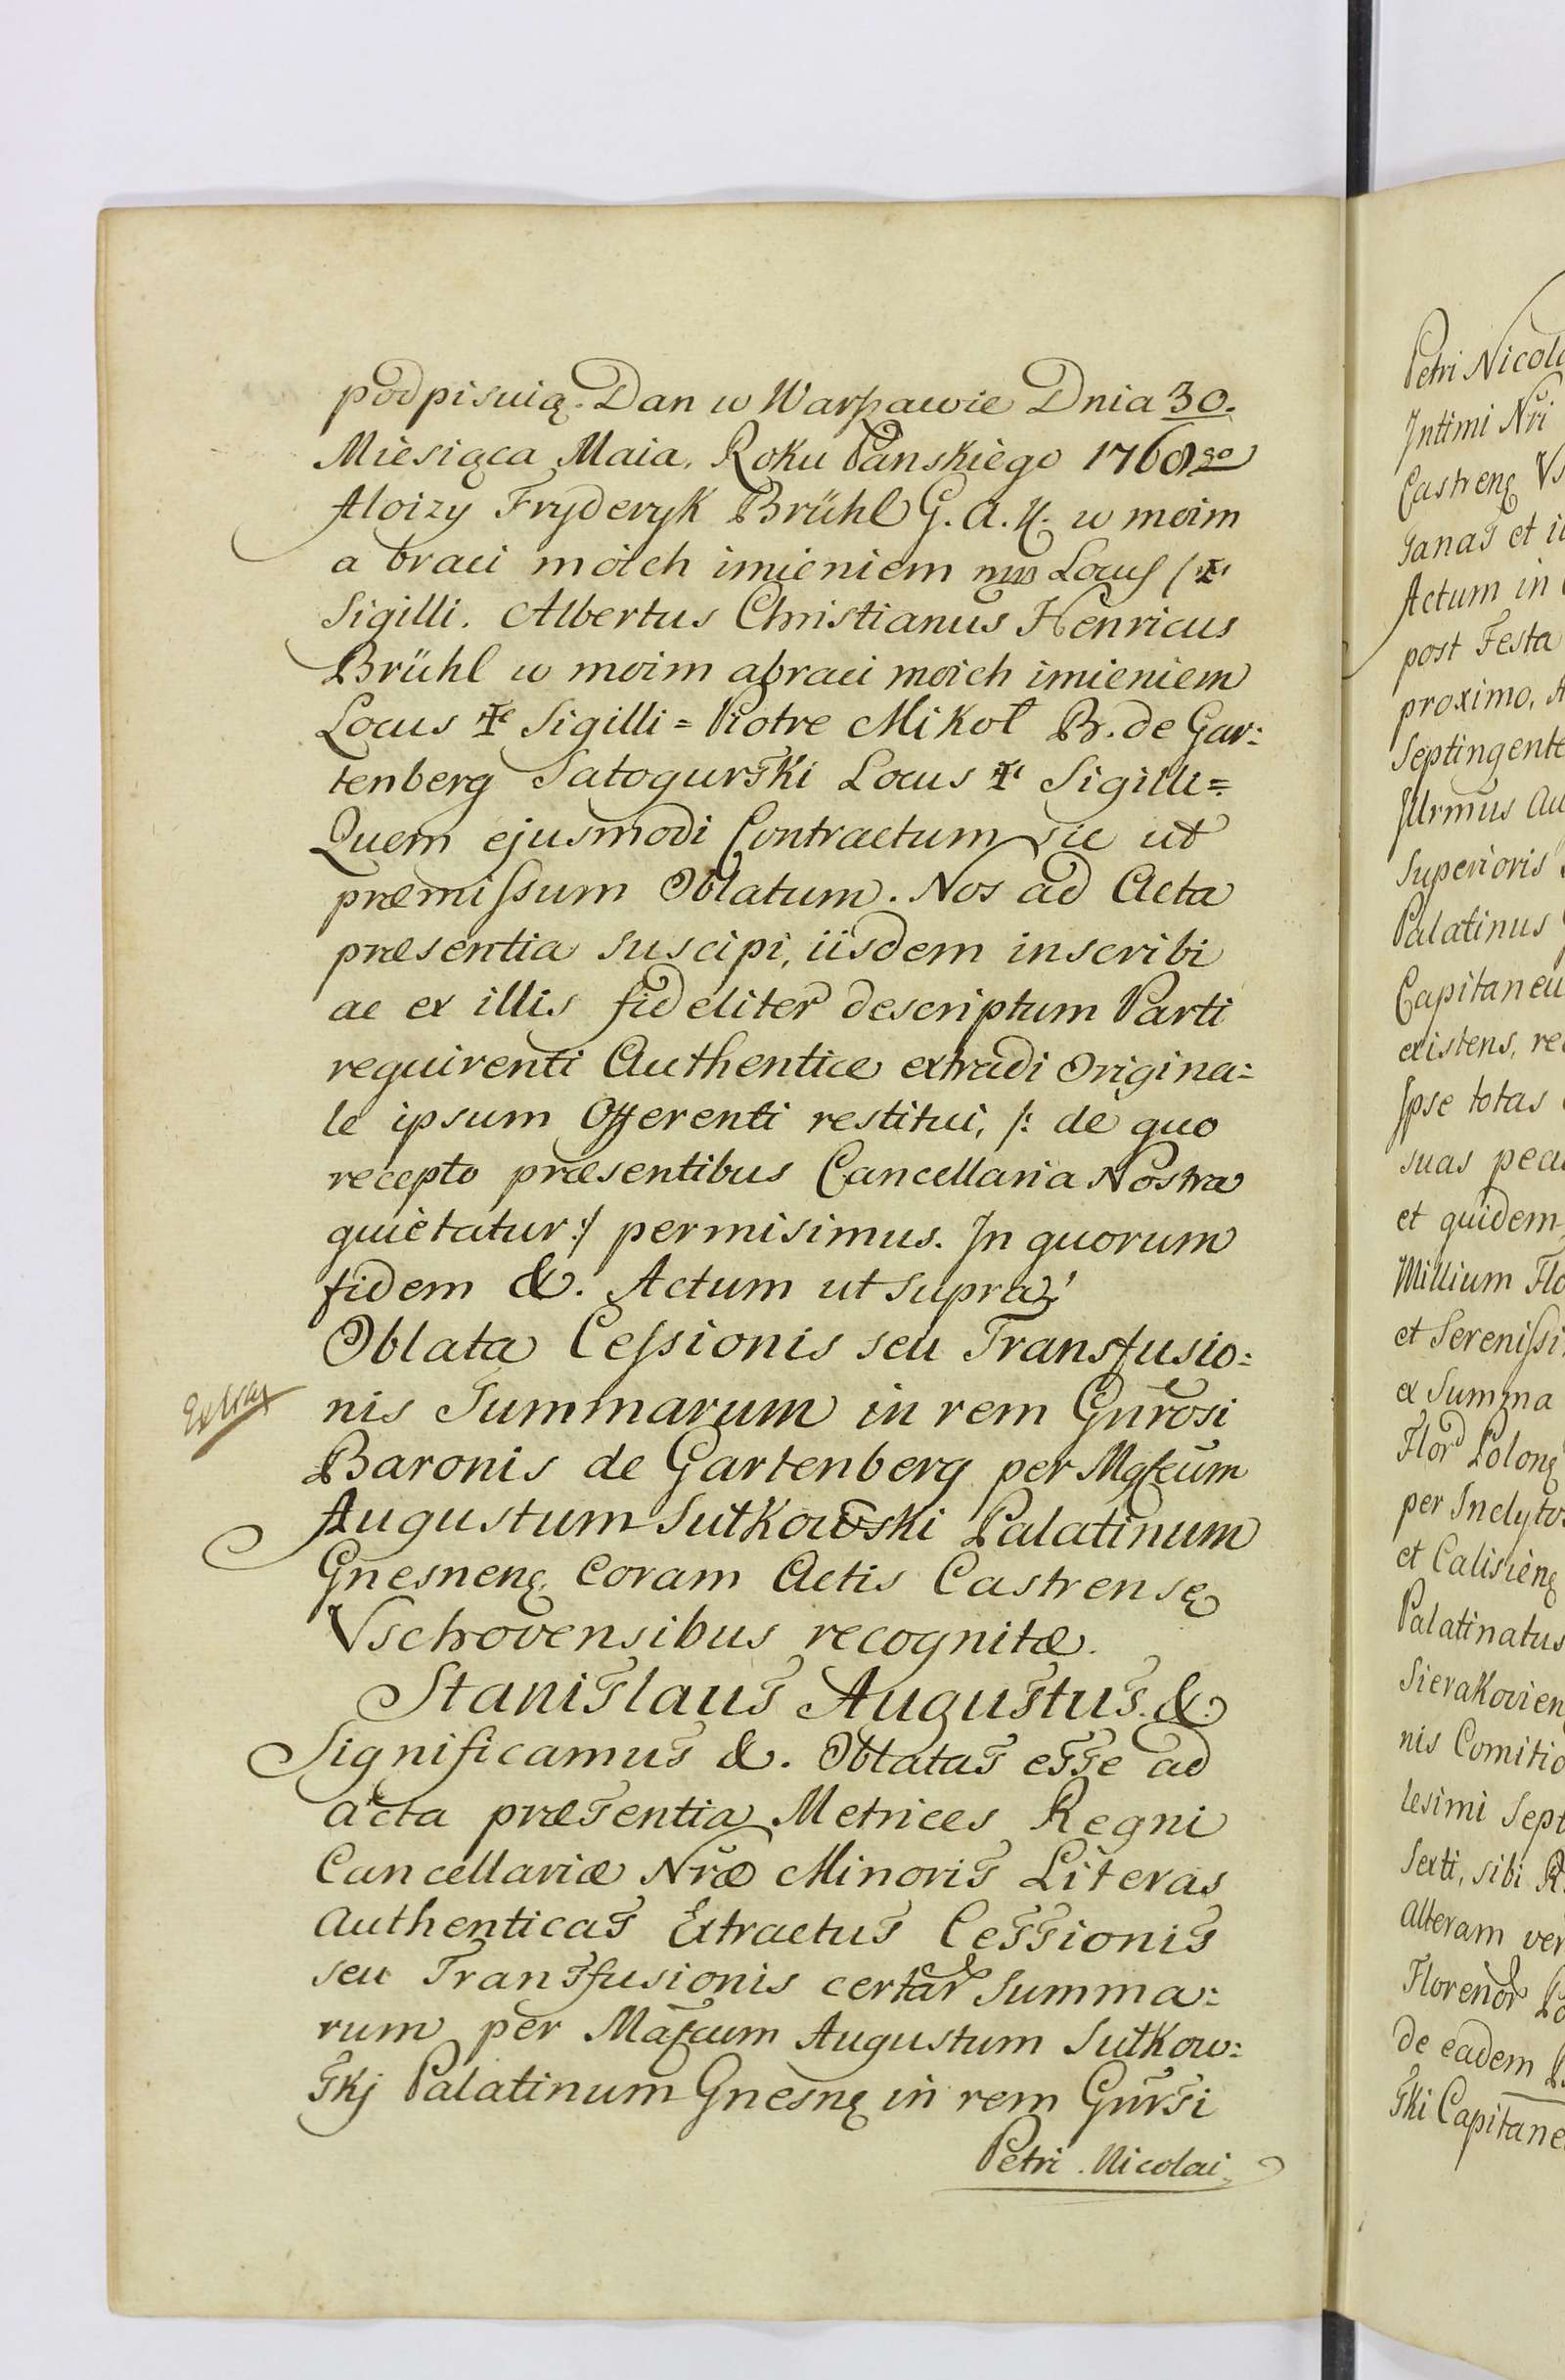 podpisuią. Dan w Warszawie Dnia 30.
Miesiąca Maia, Roku Panskiego 1768go
Aloizy Fryderyk Brühl G. A. K. w moim
a braci moich imieniem mm Locus (✠)
Sigilli. Albertus Christianus Henricus
Brühl w moim a braci moich imieniem
Locus ✠ Sigilli = Piotre Mikoł B. de Gar:
tenberg Satogurski Locus ✠ Sigilli =
Quem ejusmodi Contractum sic ut
præmissum Oblatum. Nos ad Acta
præsentia suscipi, iisdem inscribi
ac ex illis fideliter descriptum Parti
requirenti Authentice extradi Origina:
le ipsum Offerenti restitui, /: de quo
recepto præsentibus Cancellaria Nostra
quietatur :/ permisimus. In quorum
fidem &. Actum ut supra
Oblata Cessionis seu Transfusio:
Extrax
nis Summarum in rem Gnrosi
Baronis de Gartenberg per Mgfcum
Augustum Sułkowski Palatinum
Gnesnen. Coram Actis Castrense
Vschovensibus recognitæ.
Stanislaus Augustus. &.
Significamus &. Oblatas esse ad
acta præsentia Metrices Regni
Cancellariæ Nræ Minoris Literas
authenticas Extractus Cessionis
seu Transfusionis certar Summa:
rum per Magcum Augustum Sułkow:
skj Palatinum Gnesne in rem Gnrsi
Petri Nicolai

Petri Nicola
Intimi Nri
Castren Vs
sanas et i
Actum in
post Festa
proximo, A
Septingente
Illrmus Au
Superioris
Palatinus
Capitaneu
existens, re
Ipse totas
suas pecu
et quidem
Millium Flo
et Serenissi
ex Summa
Flor Polon
per Inclyto
et Calisien
Palatinatus
Sierakovien
nis Comitio
lesimi Sept
Sexti, sibi R
alteram ver
Florenor Po
de eadem P
ski Capitane